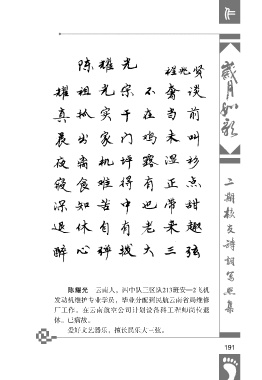 陈耀光
程兆贤
耀祖光宗不奢谈
真抓实干在当前
晨出家门鸡未叫
夜离机坪露湿衫
寝食难得有正点
深知苦中也带甜
退休自有老来趣
醉心弹拨大三弦
陈耀光 云南人，四中队三区队213班安—2飞机
发动机维护专业学员，毕业分配到民航云南省局维修
厂工作。在云南航空公司计划设备科工程师岗位退
休。已病故。
爱好文艺器乐，擅长民乐大三弦。
岁月如歌
二期校友诗词写照集
191